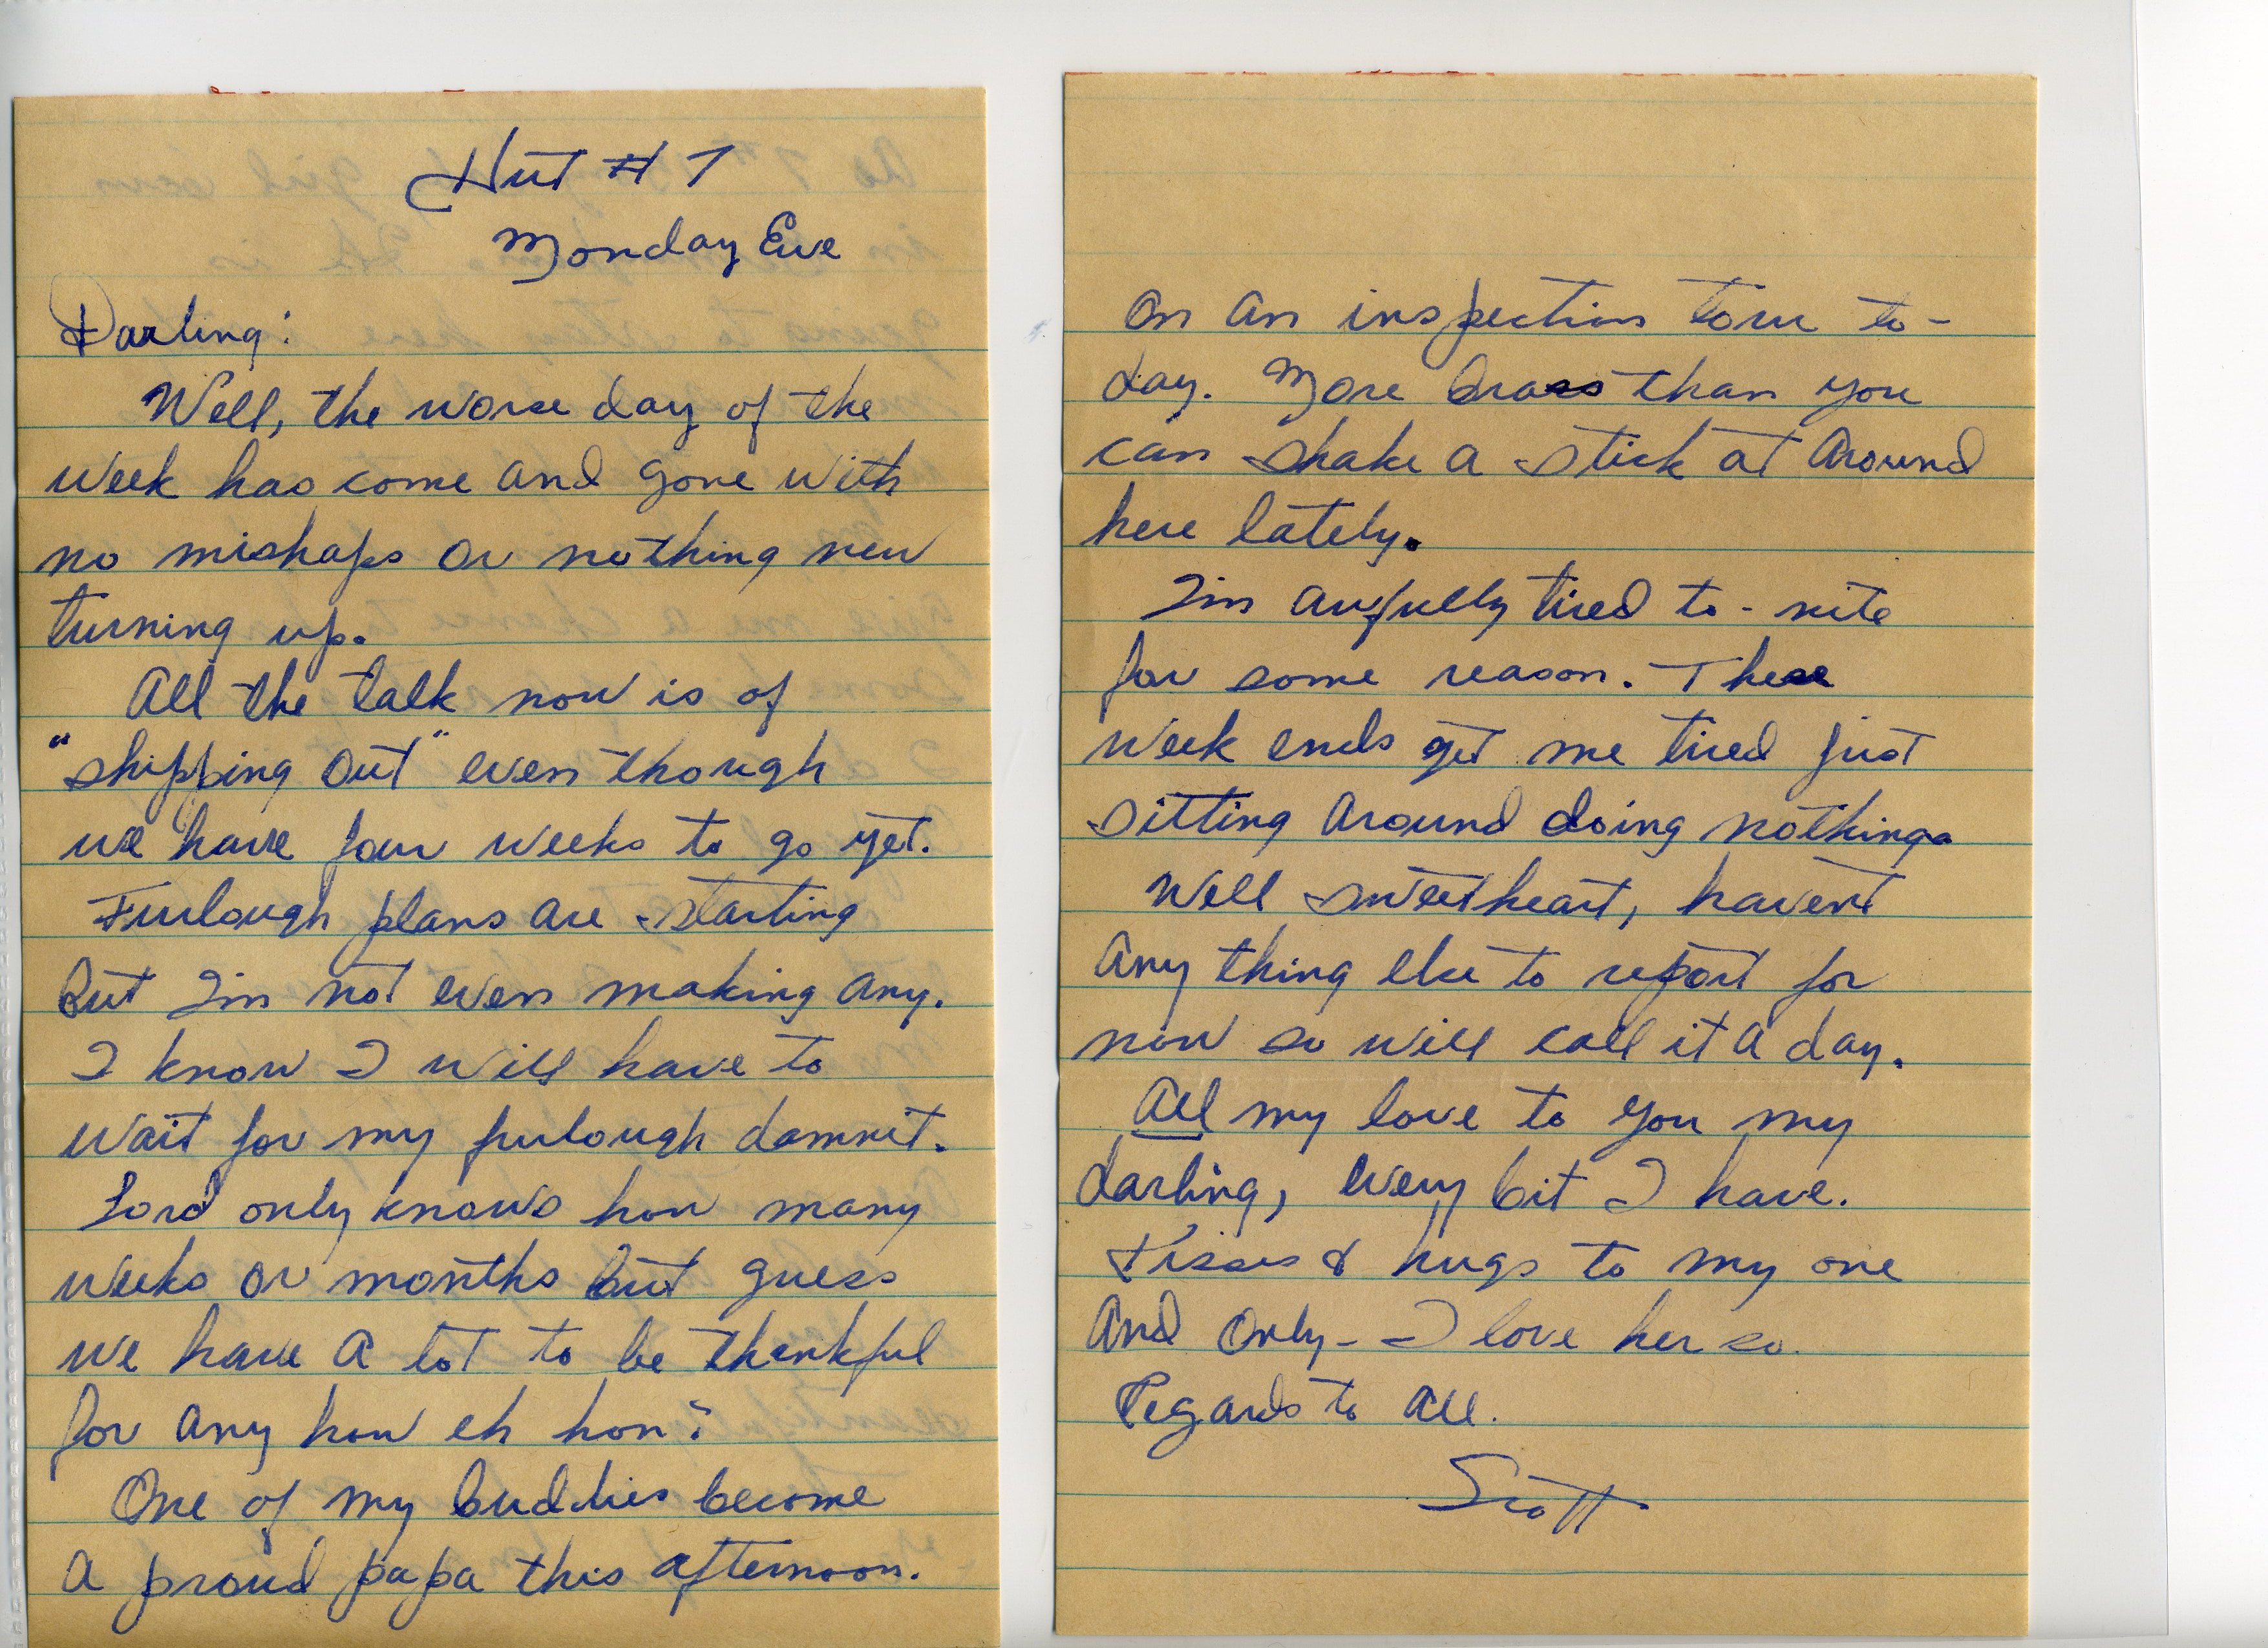 Hut # 7
Monday Eve
Darling:
Well, the worse day of the
week has come and gone with
no mishaps or nothing new
turning up.
All the talk now is of
"shipping out" even though
we have four weeks to go yet.
Furlough plans are starting
but I'm not even making any.
I know I will have to
wait for my furlough damnit.
Lord only knows how many
weeks or months but guess
we have a lot to be thankful
for any how eh hon?
One of my buddies become
a proud papa this afternoon.
On an inspection tour to-
day. More brass than you
can shake a stick at around
here lately.
I'm awfully tired to-nite
for some reason. These
week ends get me tired just
sitting around doing nothing.
Well sweetheart, haven't
any thing else to report for
now so will call it a day.
All my love to you my
darling, every bit I have.
Kisses & hugs to my one
and only - I love her so.
Regards to all.
Scott